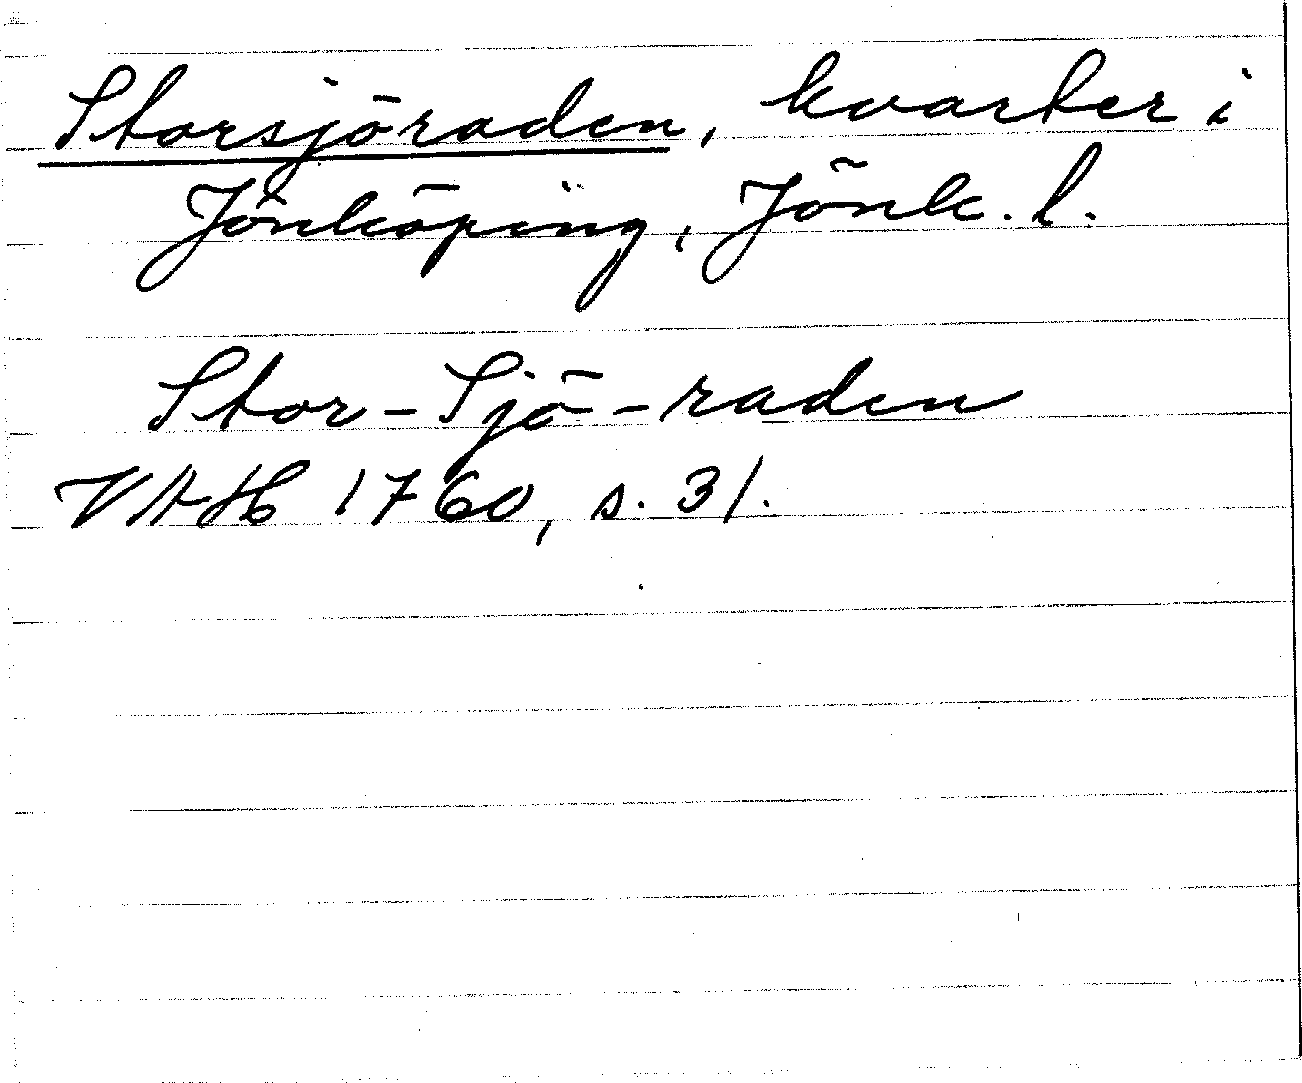 Storsjöraden, kvarter i
Jönköping, Jönk. l.
Stor-Sjö-raden
VAH 1760, s. 31.